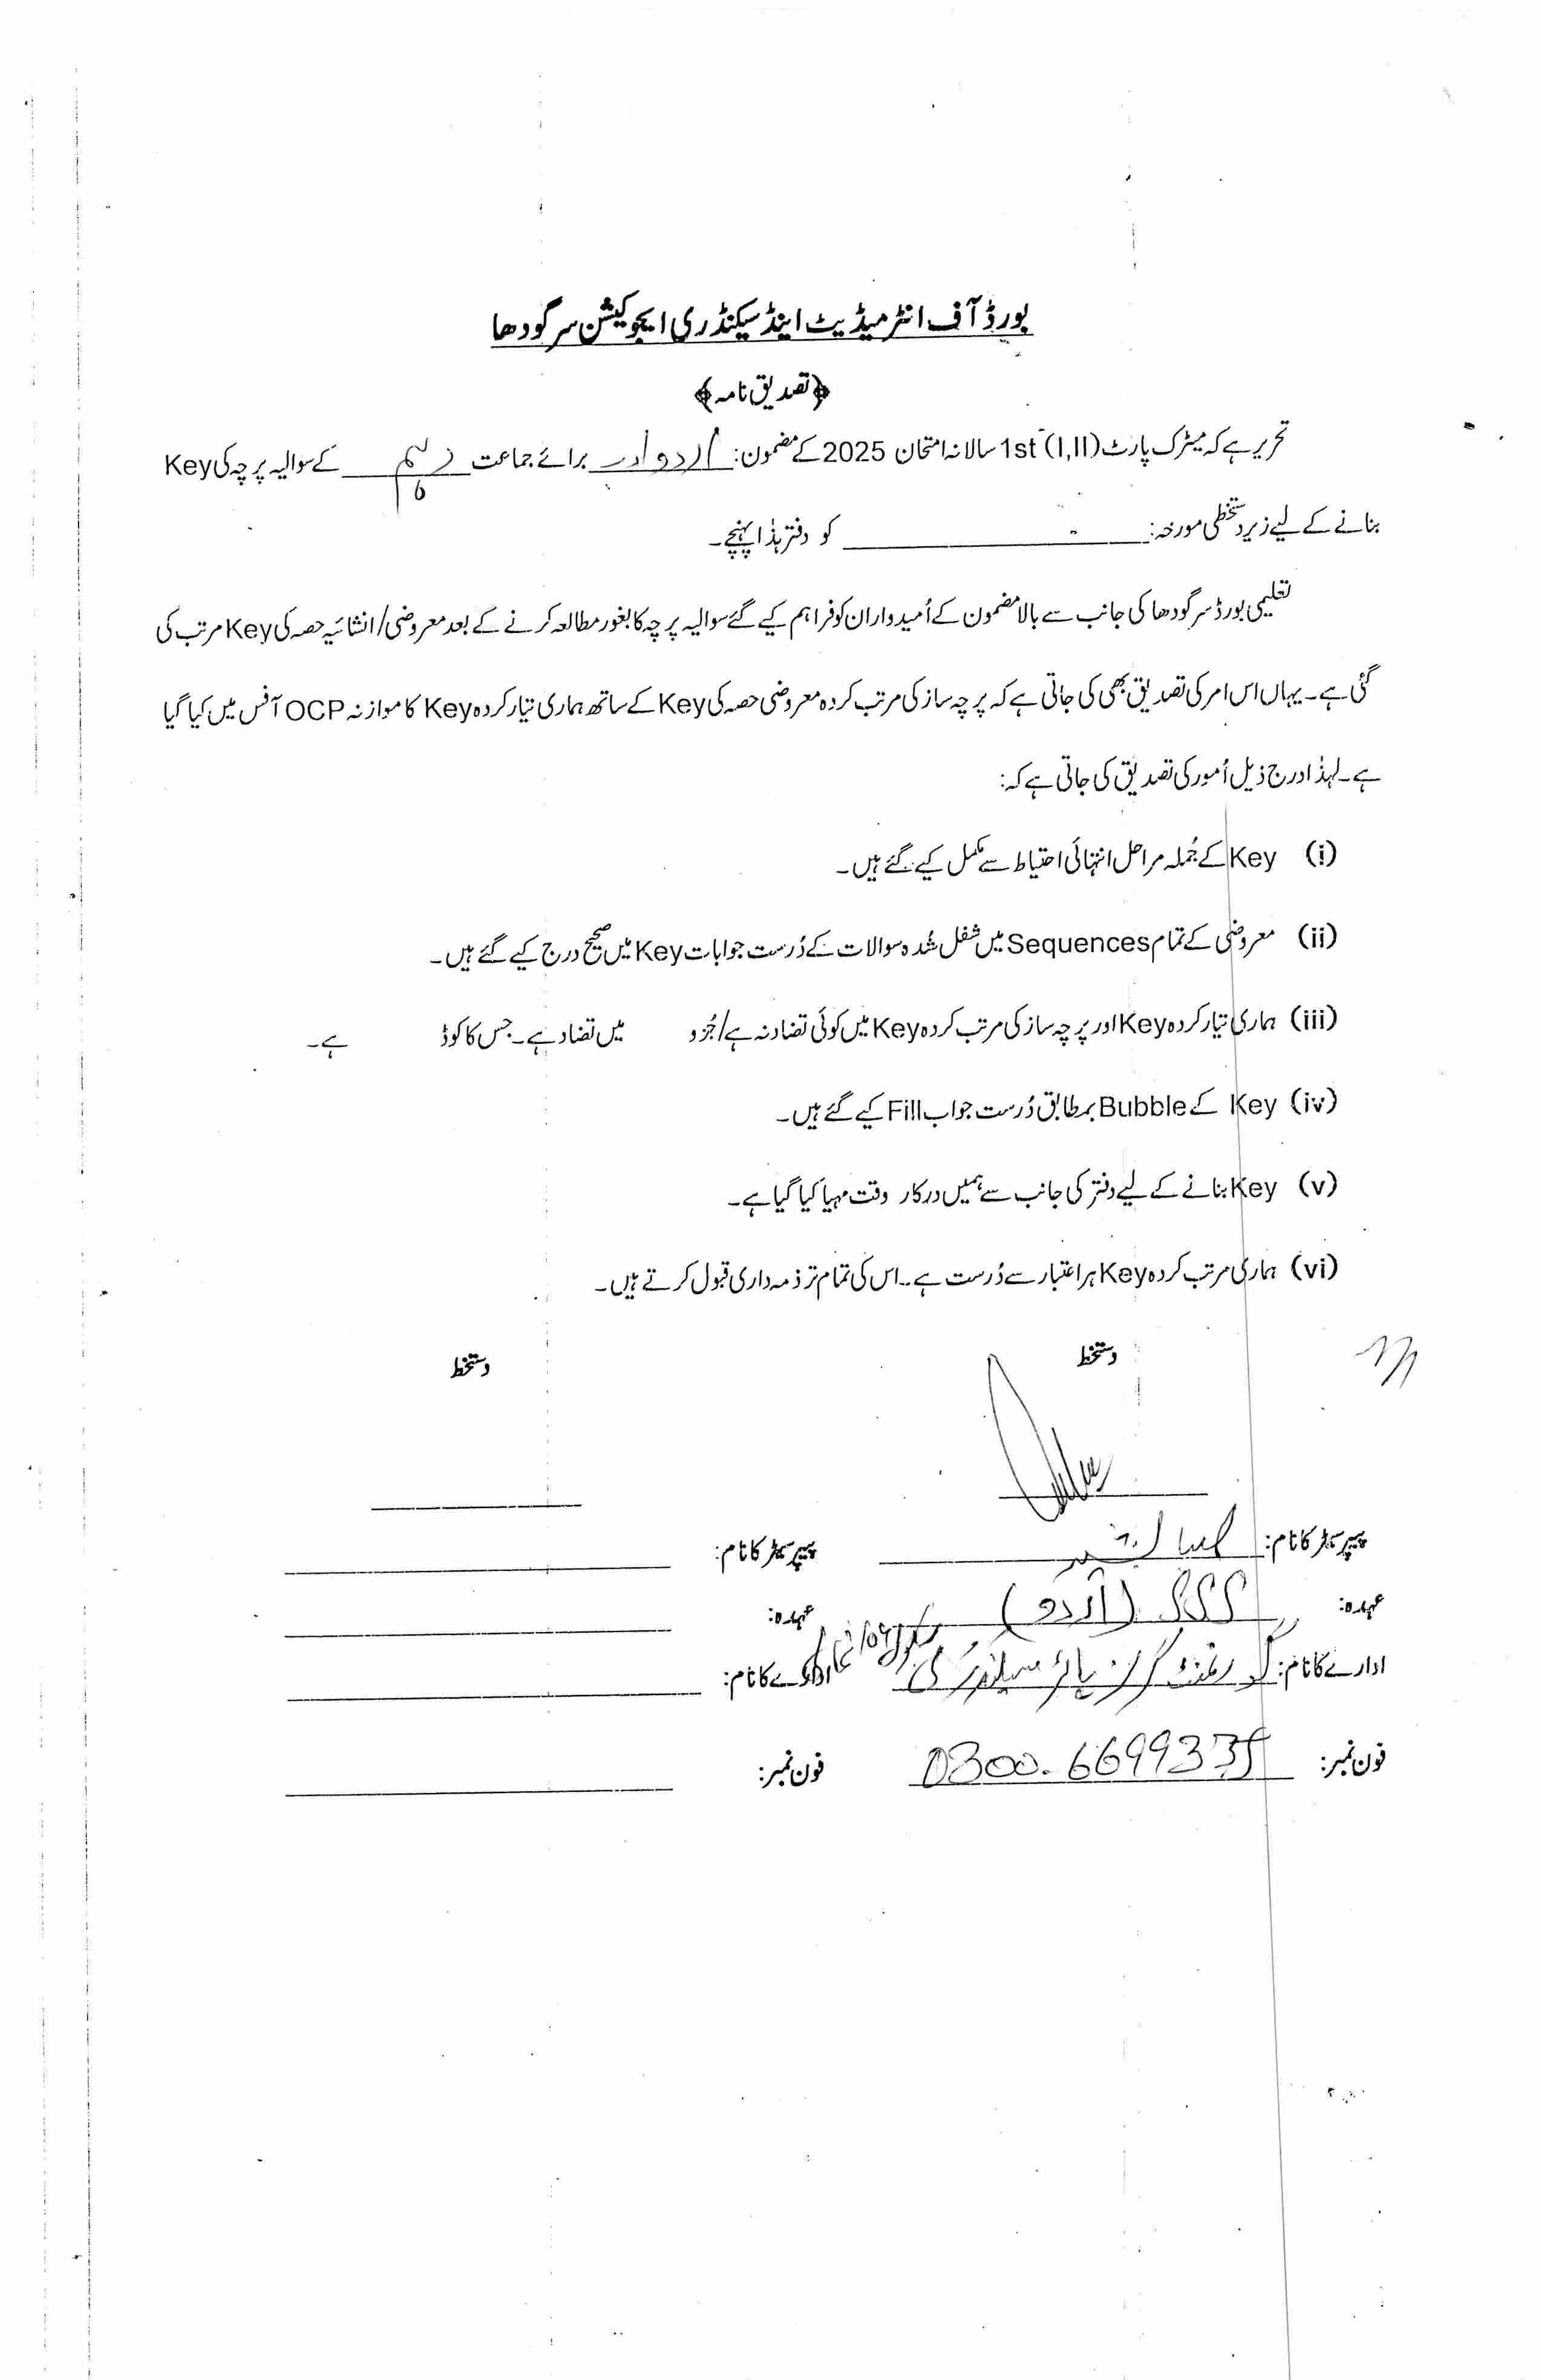 بورڈ آف انٹرمیڈیٹ اینڈ سیکنڈری ایجوکیشن سرگودھا
﴿تصدیق نامہ﴾
تحریر ہے کہ میٹرک پارٹ (I,II) 1st سالانہ امتحان 2025 کے مضمون: اردو ادب برائے جماعت دہم کے سوالیہ پرچہ کی Key
بنانے کے لیے زیر دستخطی مورخہ: کو دفتر ہذا پہنچے۔
تعلیمی بورڈ سرگودھا کی جانب سے بالا مضمون کے اُمیدواران کو فراہم کیے گئے سوالیہ پرچہ کا بغور مطالعہ کرنے کے بعد معروضی/انشائیہ حصہ کی Key مرتب کی
گئی ہے۔ یہاں اس امر کی تصدیق بھی کی جاتی ہے کہ پرچہ ساز کی مرتب کردہ معروضی حصہ کی Key کے ساتھ ہماری تیار کردہ Key کا موازنہ OCP آفس میں کیا گیا
ہے۔ لہذٰا درج ذیل اُمور کی تصدیق کی جاتی ہے کہ:
(i) Key کے جُملہ مراحل انتہائی احتیاط سے مکمل کیے گئے ہیں۔
(ii) معروضی کے تمام Sequences میں شفل شُدہ سوالات کے دُرست جوابات Key میں صحیح درج کیے گئے ہیں۔
(iii) ہماری تیار کردہ Key اور پرچہ ساز کی مرتب کردہ Key میں کوئی تضاد نہ ہے/جُزو میں تضاد ہے۔ جس کا کوڈ ہے۔
(iv) Key کے Bubble بمطابق دُرست جواب Fill کیے گئے ہیں۔
(v) Key بنانے کے لیے دفتر کی جانب سے ہمیں درکار وقت مہیا کیا گیا ہے۔
(vi) ہماری مرتب کردہ Key ہر اعتبار سے دُرست ہے۔ اس کی تمام تر ذمہ داری قبول کرتے ہیں۔
دستخط دستخط
پیپر سیٹر کا نام: پیپر سیٹر کا نام:
عہدہ: SSS (اردو) عہدہ:
ادارے کا نام: گورنمنٹ گرلز ہائر سیکنڈری سکول ادارے کا نام:
فون نمبر: 0300-6699335 فون نمبر: